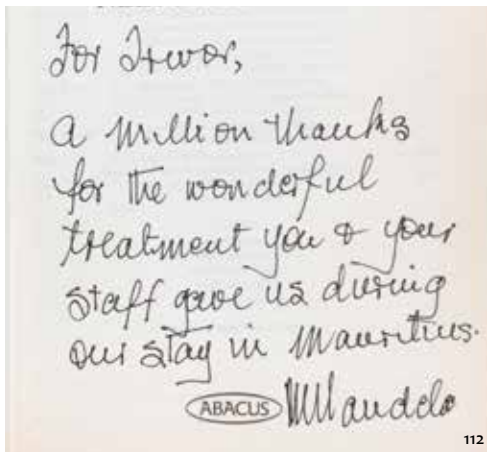 For Trevor,
A million thanks
for the wonderful
treatment you & your
staff gave us during
our stay in Mauritius.
ABACUS NMandela
112